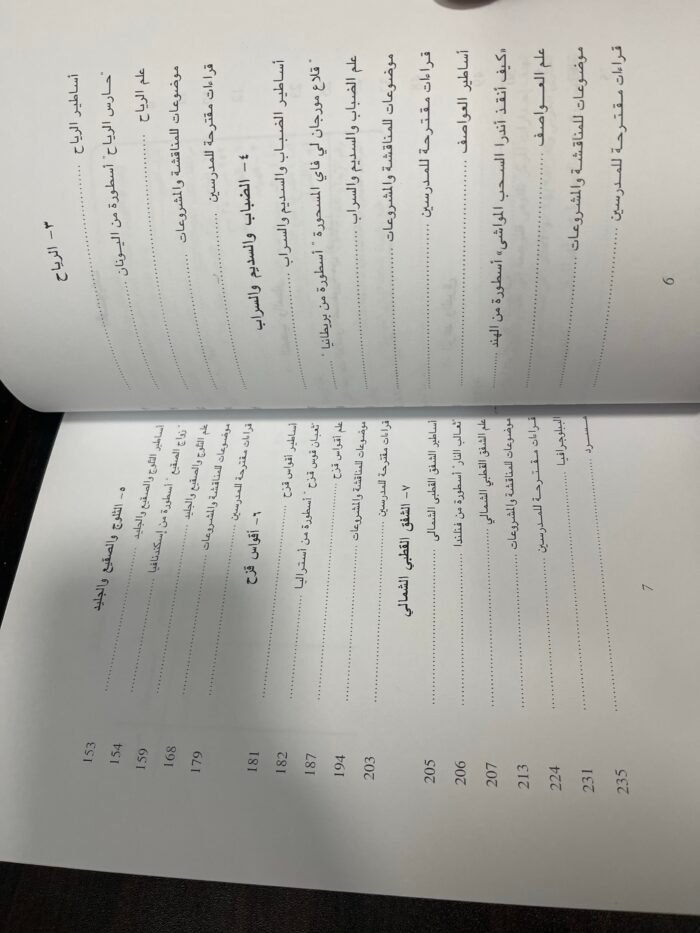 ٣- الرياح
أساطير الرياح
"حارس الرياح" أسطورة من اليونان
علم الرياح
موضوعات للمناقشة والمشروعات
قراءات مقترحة للمدرسين
٤- الضباب والسديم والسراب
أساطير الضباب والسديم والسراب
"قلاع مورجان لي فاي المسحورة" أسطورة من بريطانيا
علم الضباب والسديم والسراب
موضوعات للمناقشة والمشروعات
قراءات مقترحة للمدرسين
أساطير العواصف
«كيف أنقذ أندرا السحب المواشى» أسطورة من الهند
علم العواصف
موضوعات للمناقشة والمشروعات
قراءات مقترحة للمدرسين
6
٥- الثلوج والصقيع والجليد
أساطير الثلوج والصقيع والجليد 153
"زواج الصقيع" أسطورة من إسكندنافيا 154
علم الثلوج والصقيع والجليد 159
موضوعات للمناقشة والمشروعات 168
قراءات مقترحة للمدرسين 179
٦- أقواس قزح
أساطير أقواس قزح 181
"ثعبان قوس قزح" أسطورة من أستراليا 182
علم أقواس قزح 187
موضوعات للمناقشة والمشروعات 194
قراءات مقترحة للمدرسين 203
٧- الشفق القطبي الشمالي
أساطير الشفق القطبى الشمالى 205
"ثعالب النار" أسطورة من فنلندا 206
علم الشفق القطبي الشمالي 207
موضوعات للمناقشة والمشروعات 213
قراءات مقترحة للمدرسين 224
الببليوجرافيا 231
مسرد 235
7